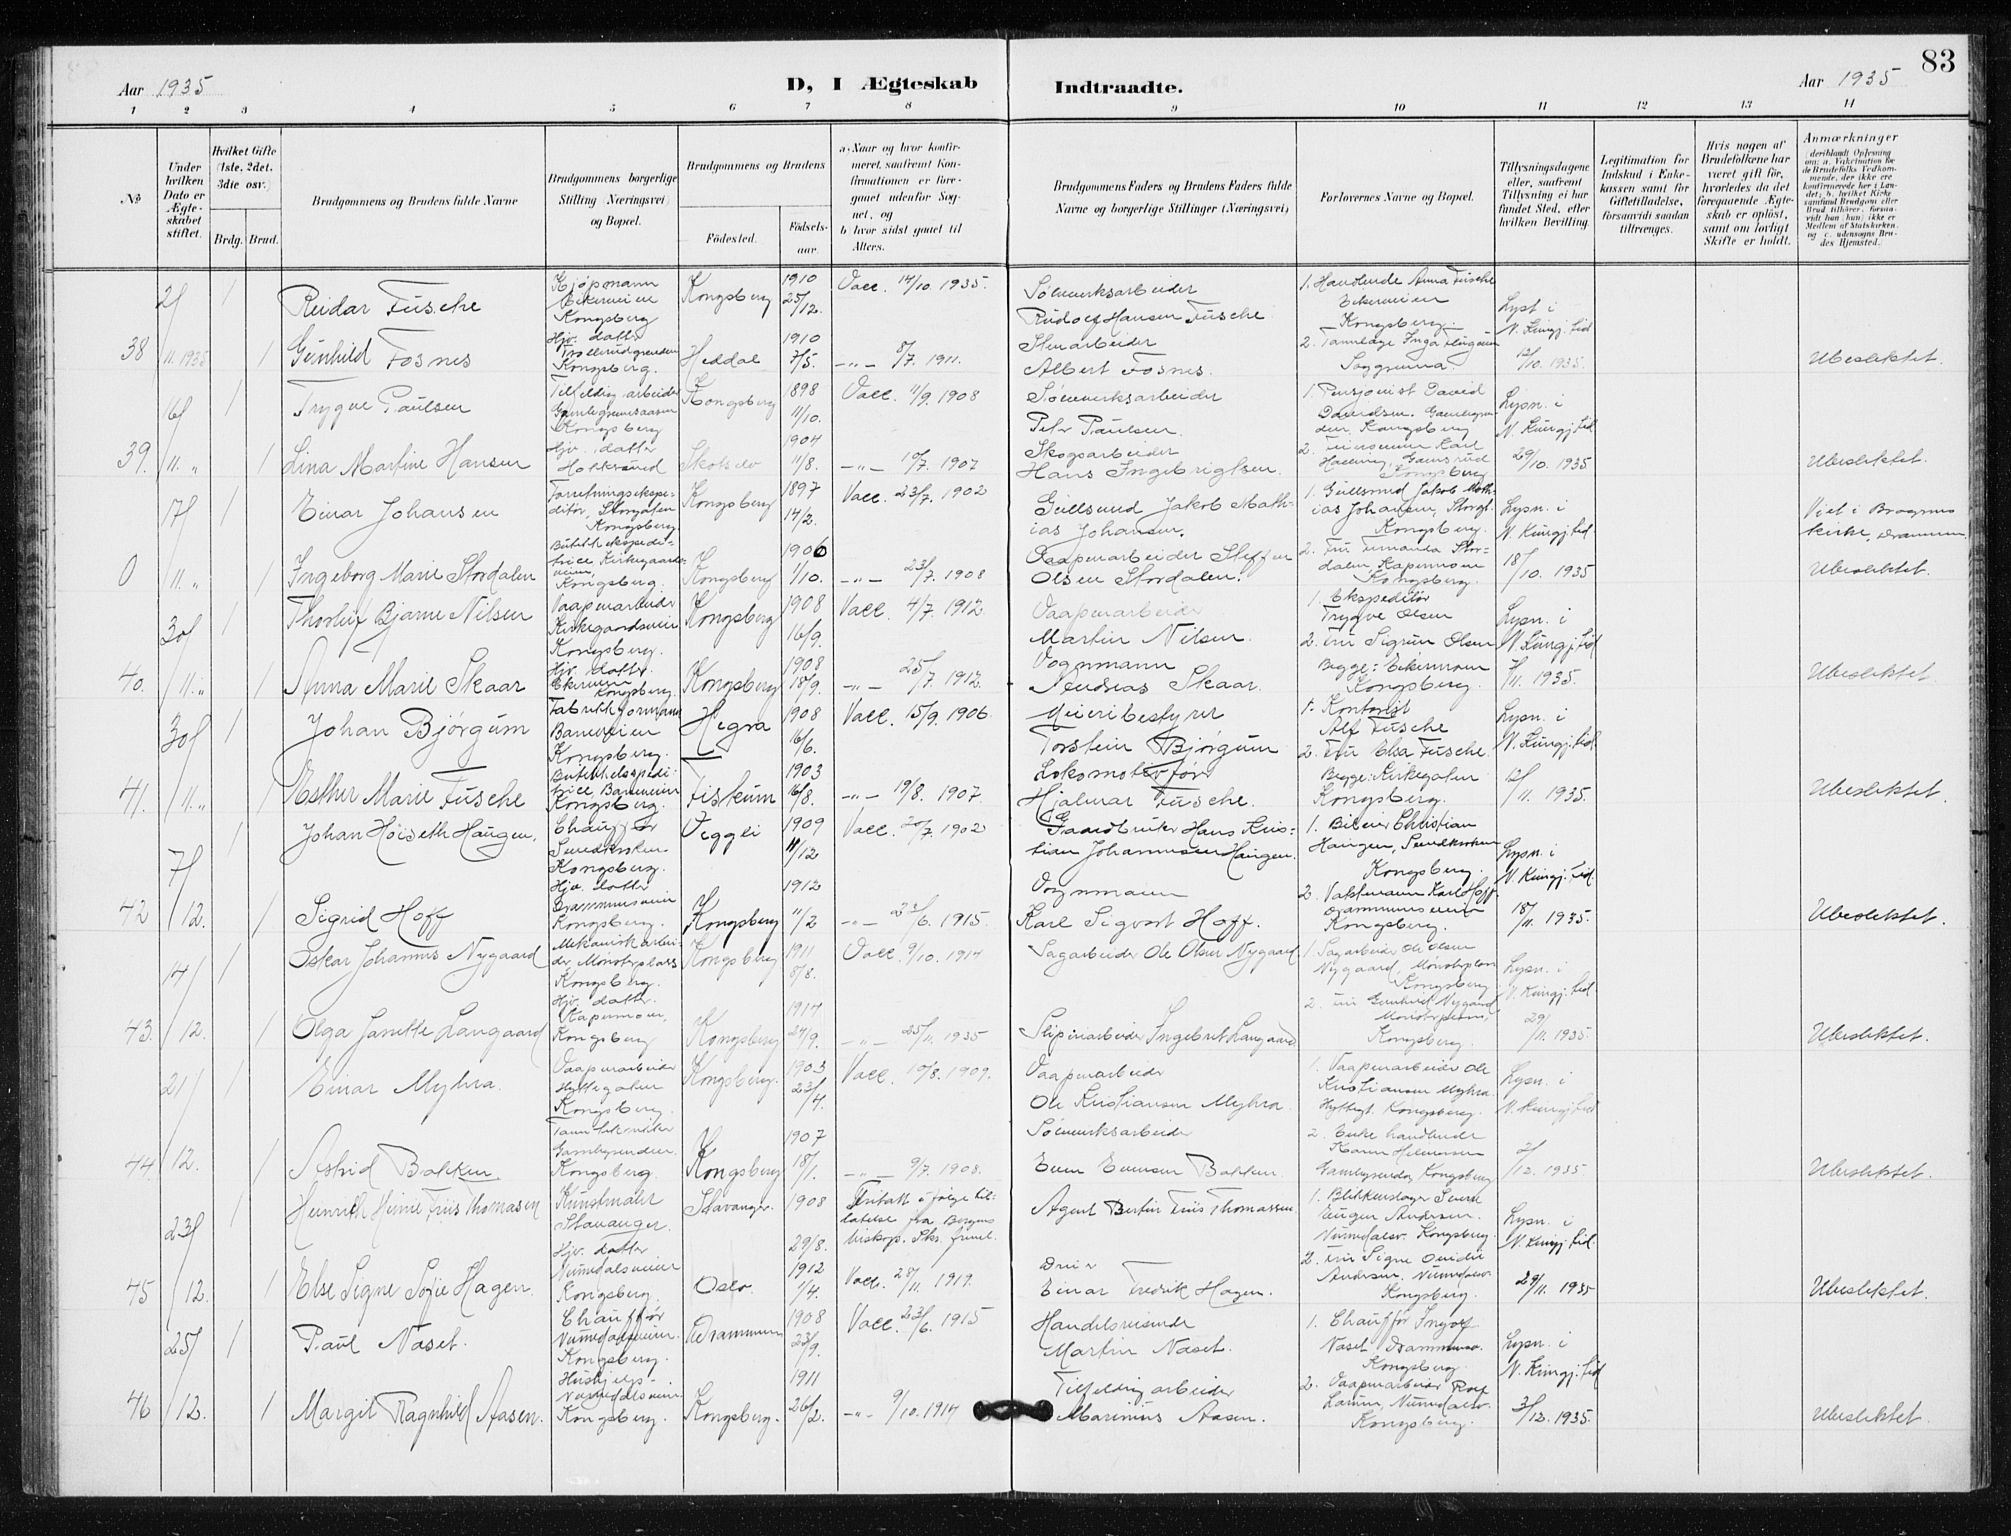 83
Aar 1935
D, I Ægteskab
Indtraadte.
Aar 1935
1 2 3 4 5 6 7 8 9 10 11 12 13 14
No
Under hvilken Dato er Ægteskabet stiftet.
Hvilket Gifte (1ste, 2det, 3die osv.)
Brdg. Brud.
Brudgommens og Brudens fulde Navne
Brudgommens borgerlige Stilling (Næringsvei) og Bopæl.
Brudgommens og Brudens
Fødested.
Fødselsaar.
a. Naar og hvor konfirmeret, saafremt Konfirmationen er foregaaet udenfor Sognet, og
b hvor sidst gaaet til Alters.
Brudgommens Faders og Brudens Faders fulde Navne og borgerlige Stillinger (Næringsvei)
Forlovernes Navne og Bopæl.
Tillysningsdagene eller, saafremt Tillysning ei har fundet Sted, efter hvilken Bevilling.
Legitimation for Indskud i Enkekassen samt for Giftetilladelse, forsaavidt saadan tiltrænges.
Hvis nogen af Brudefolkene har været gift før, hvorledes da det foregaaende Ægteskab er opløst, samt om lovligt Skifte er holdt.
Anmærkninger
(deriblandt Oplysning om: a. Vakcination for de Brudefolks Vedkommende, der ikke ere konfirmerede her i Landet; b. hvilket Kirkesamfund Brudgom eller Brud tilhører, forsaavidt han (hun) ikke er Medlem af Statskirken, og c. udensogns Brudes Hjemsted.
2/ 1 Reidar Fusche Kjøpmann Eikerveien Kongsberg Kongsberg 1910 25/12. Vacc. 14/10. 1935. Sølvverksarbeider Rudolf Hansen Fusche 1. Handlende Anna Fusche Eikerveien Kongsberg. Lyst i N. Kungj. tid
38 11. 1935 1 Gunhild Fosnes Hjv. datter Kongsberg. Heddal 1910 7/5. -„- 8/7. 1911. Stenarbeider Albert Fosnes. 2. 12/10. 1935. Ubeslektet.
16/ 1 Trygve Paulsen Tilfeldig arbeider Kongsberg Kongsberg 1898 11/10. Vacc. 11/9. 1908 Sølvverksarbeider Peter Paulsen. 1. Pensjonist David Davidsen. Kongsberg Lysn. i N. Kungj. tid
39. 11. „ 1 Lina Martine Hansen Hjv. datter 1904 11/8. -„- 19/7. 1907 Skogsarbeider Hans Ingebrigtsen. 2. Kongsberg 29/10. 1935 Ubeslektet.
17/ 1 Einar Johansen Forretningsekspeditør, Storgaten Kongsberg. Kongsberg 1897 14/2. Vacc. 23/7. 1902 Gullsmed Jakob Mathias Johansen. 1. Gullsmed Jakob Mathias Johansen, Storgt. Kongsberg. Lysn. i N. Kungj. tid Viet i Bragernes kirke, Drammen.
0 11. „ 1 Ingeborg Marie Stordalen Butikkekspeditrice Kirkegaardsveien Kongsberg. Kongsberg 1906 1/10. -„- 23/7. 1908 Vaapenarbeider Steffen Olsen Stordalen. 2. Fru Fernanda Stordalen Kongsberg. 18/10. 1935 Ubeslektet.
30/ 1 Thorleif Bjarne Nilsen Vaapenarbeider Kirkegaardsveien Kongsberg. Kongsberg 1908 16/9. Vacc. 4/7. 1912 Vaapenarbeider Martin Nilsen. 1. Ekspeditør Trygve Olsen Lysn. i N. Kungj. tid
40. 11. „ 1 Anna Marie Skaar Hjv. datter. Kongsberg. Kongsberg 1908 18/9. -„- 25/7. 1912. Vognmann Andreas Skaar. 2. Fru Sigrun Olsen Begge: Kongsberg. 7/11. 1935. Ubeslektet.
30/ 1 Johan Bjørgum Fabrikkformann Kongsberg. Hegra 1908 16/6. Vacc. 15/9. 1906. Meieribestyrer Torstein Bjørgum 1. Kontorist Alf Fusche Lysn. i N. Kungj. tid.
41. 11. „ 1 Esther Marie Fusche Butikkekspeditrice Kongsberg. Fiskum 1903 16/8. -„- 19/8. 1907 Lokomotivfører Hjalmar Fusche. 2. Fru Elsa Fusche. Begge: Kirkegaten Kongsberg. 12/11. 1935. Ubeslektet.
7/ 1 Johan Høiseth Haugen. Chauffør Kongsberg. Veggli 1909 11/12 Vacc. 20/7. 1902 Gaardbruker Hans Kristian Johannesen Haugen. 1. Bileier Christian Haugen, Kongsberg. Lysn. i N. Kungj. tid.
42 12. 1 Sigrid Hoff Hjv. datter Drammensveien Kongsberg. Kongsberg 1912 11/2 -„- 23/6. 1915. Vognmann Karl Sigvart Hoff. 2. Vaktmann Karl Hoff Drammensveien Kongsberg. 18/11. 1935. Ubeslektet.
14/ 1 Oskar Johannes Nygaard Mekanisk arbeider Kongsberg. Kongsberg 1911 8/8. Vacc. 9/10. 1914 Sagarbeider Ole Olsen Nygaard 1. Sagarbeider Ole Olsen Nygaard, Kongsberg. Lysn. i N. Kungj. tid.
43. 12. 1 Olga Janette Langaard Hjv. datter. Kongsberg Kongsberg 1914 24/9. -„- 25/11. 1935 Sliperiarbeider Ingebret Langaard 2. Fru Gunhild Nygaard Kongsberg. 29/11. 1935. Ubeslektet.
21/ 1 Einar Myhra. Vaapenarbeider Hyttegaten Kongsberg. Kongsberg. 1903 23/4. Vacc. 19/8. 1909. Vaapenarbeider Ole Kristiansen Myhra. 1. Vaapenarbeider Ole Kristiansen Myhra Hyttegt. Kongsberg. Lysn. i N. Kungj. tid
44. 12. 1 Astrid Bakken Kongsberg. Kongsberg 1907 18/1. -„- 9/7. 1908. Sølvverksarbeider Even Evensen Bakken. 2. Kongsberg 2/12. 1935 Ubeslektet.
23/ 1 Heinrich Heine Friis Thomasen Kunstmaler Stavanger. Stavanger. 1908 29/8. Fritatt i følge tillatelse fra Bergens biskop. Agent Bertin Friis Thomassen 1. Blikkenslager Eugen Andersen. Numedalsv. Kongsberg. Lysn. i N. Kungj. tid.
45 12. 1 Else Signe Sofie Hagen. Hjv. datter Numedalsveien Kongsberg. Oslo. 1912 1/4. Vacc. 28/11. 1919. Einar Fredrik Hagen. 2. Fru Signe Andersen. Numedalsv. Kongsberg. 29/11. 1935 Ubeslektet.
25/ 1 Paul Naset. Chauffør Numedalsveien. Kongsberg. Drammen 1908 23/9. Vacc. 23/6. 1915 Handelsreisende Martin Naset. 1. Chauffør Ingolf Naset Drammensv. Kongsberg. Lysn. i N. Kungj. tid
46 12. 1 Margit Ragnhild Aasen. Numedalsveien Kongsberg. Kongsberg. 1911 26/2. -„- 9/10. 1914 Tilfeldig arbeider Marinius Aasen. 2. Vaapenarbeider Rolf Numedalsv. Kongsberg. 3/12. 1935. Ubeslektet.